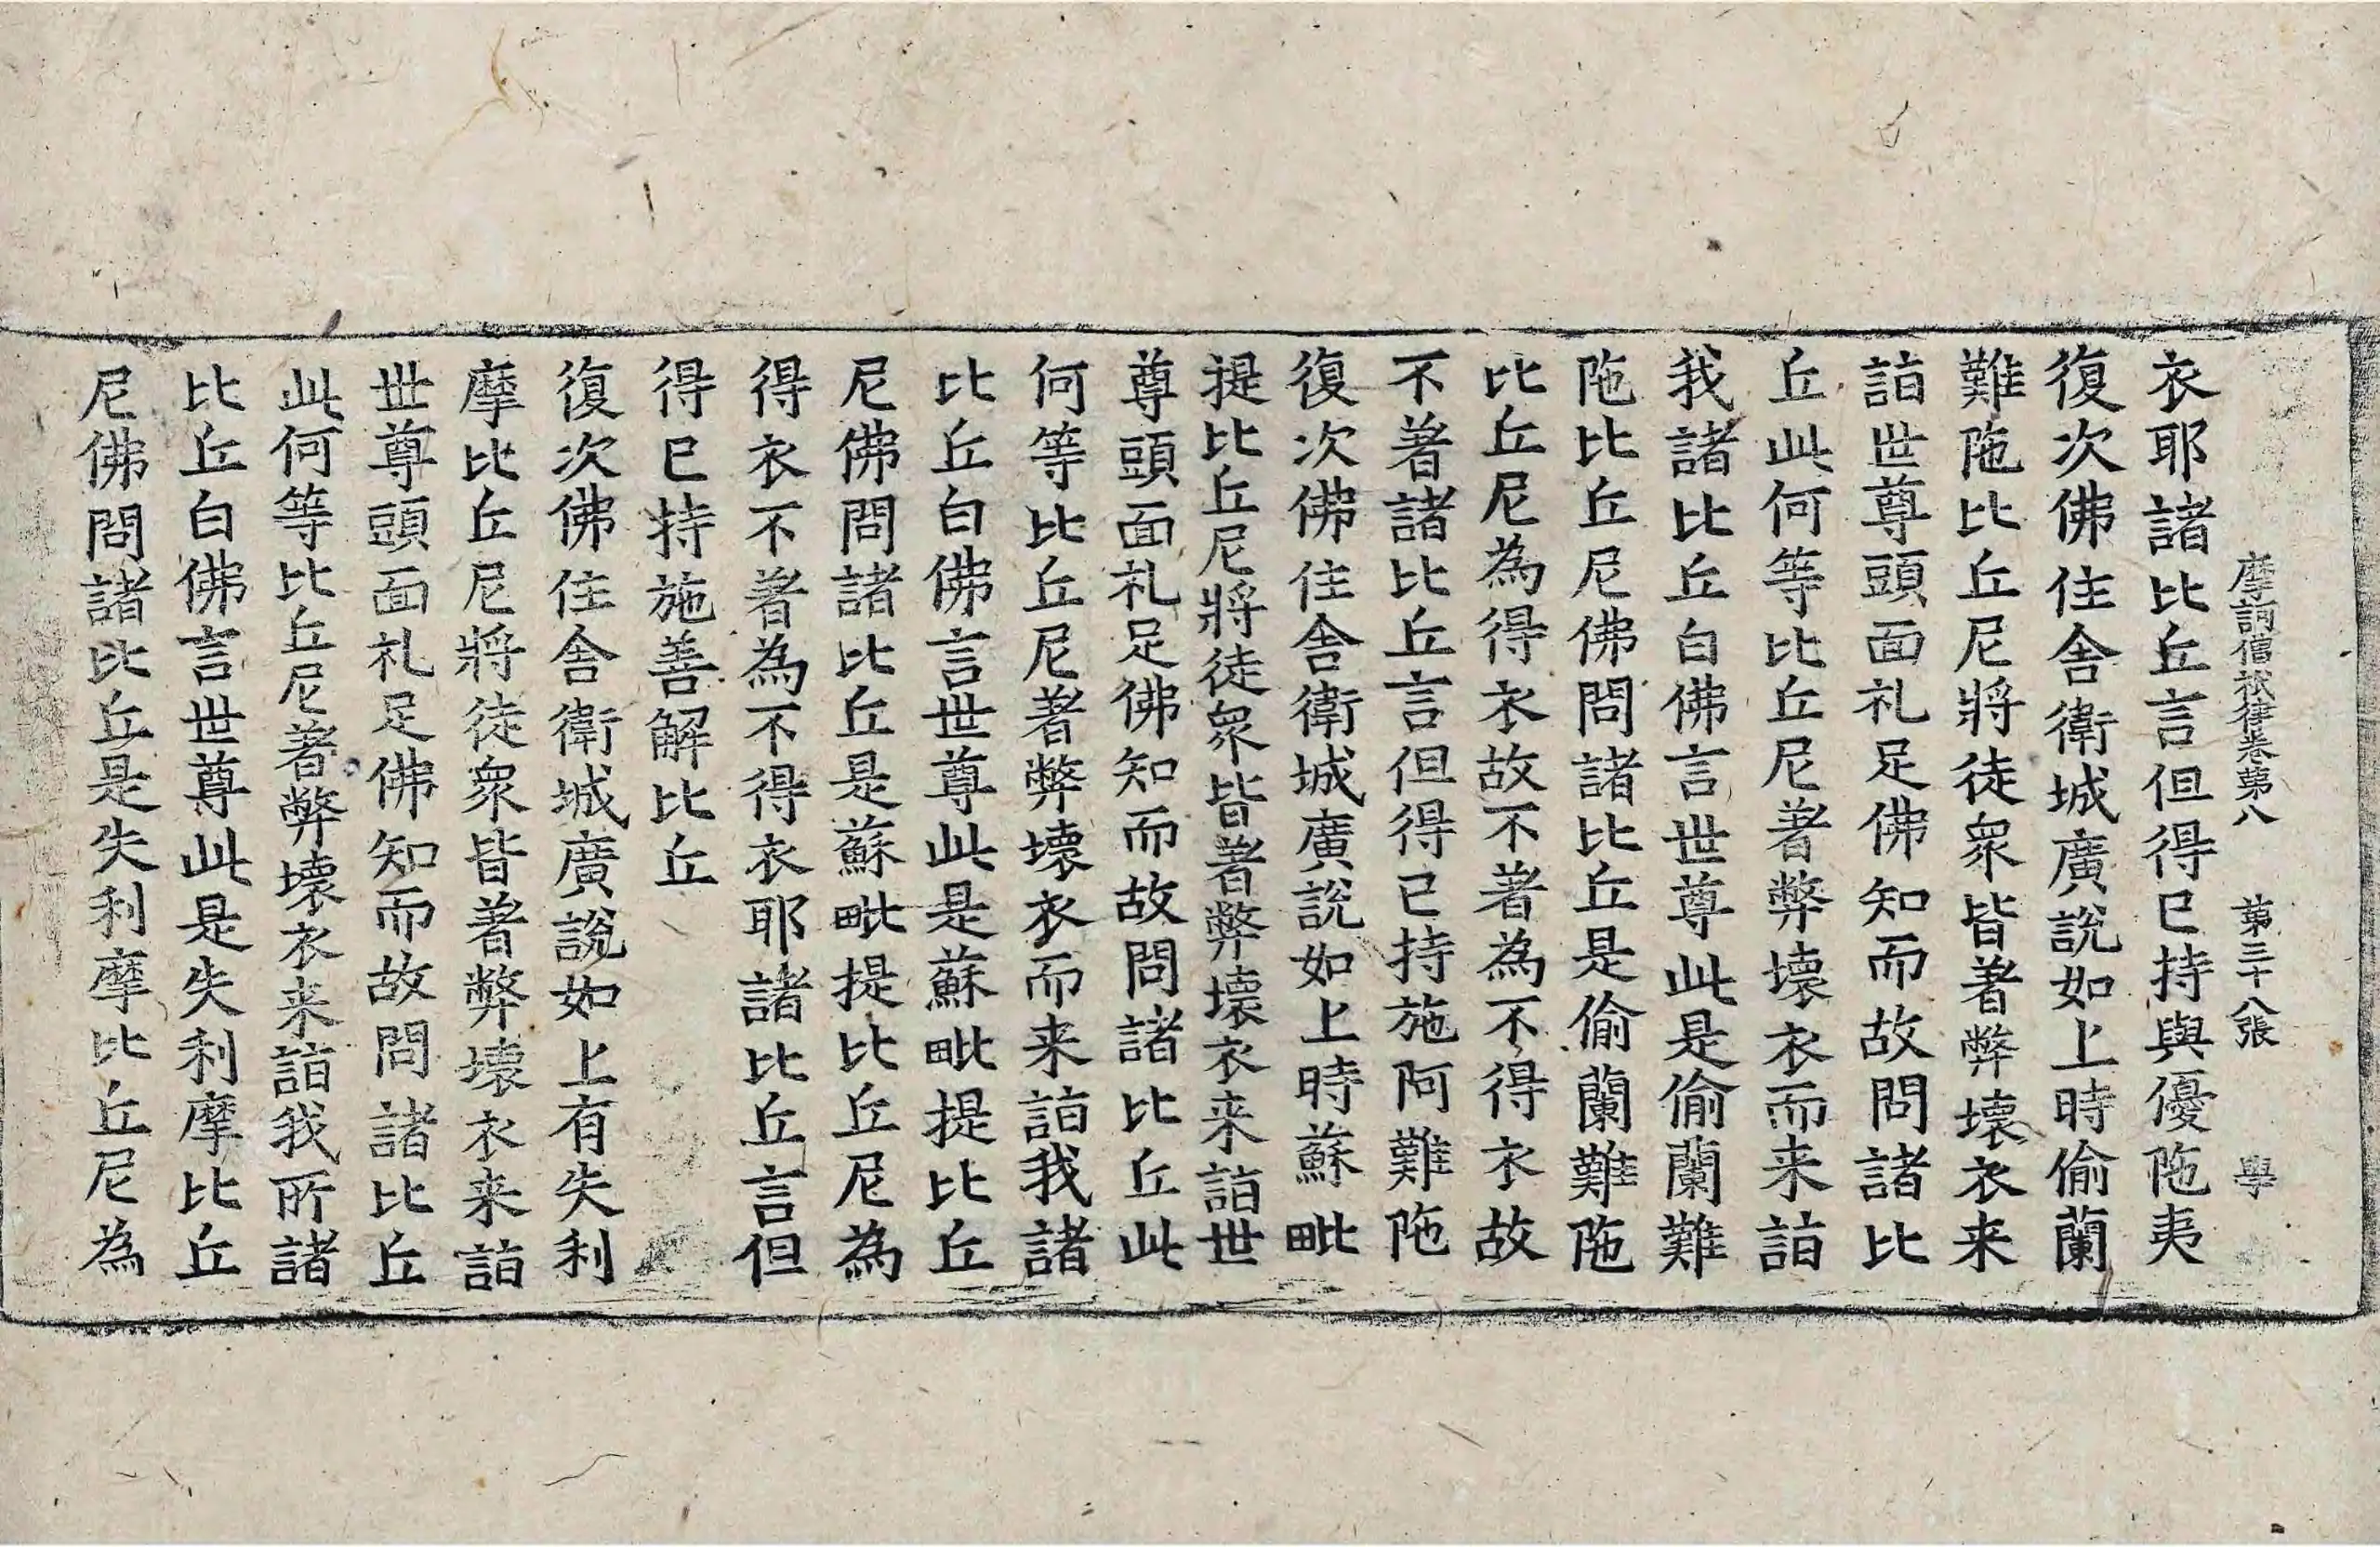 摩訶僧祇律卷第八 第三十八張 學
衣耶諸比丘言但得已持與優陁夷
復次佛住舎衛城廣說如上時偷蘭
難陁比丘尼將徒衆皆著弊壞衣来
詣世尊頭面礼足佛知而故問諸比
丘此何等比丘尼著弊壞衣而来詣
我諸比丘白佛言世尊此是偷蘭難
陁比丘尼佛問諸比丘是偷蘭難陁
比丘尼為得衣故不著為不得衣故
不著諸比丘言但得已持施阿難陁
復次佛住舎衛城廣說如上時蘇毗
提比丘尼將徒衆皆著弊壞衣来詣世
尊頭面礼足佛知而故問諸比丘此
何等比丘尼著弊壞衣而来詣我諸
比丘白佛言世尊此是蘇毗提比丘
尼佛問諸比丘是蘇毗提比丘尼為
得衣不著為不得衣耶諸比丘言但
得已持施善解比丘
復次佛住舎衛城廣說如上有失利
摩比丘尼將徒衆皆著弊壞衣来詣
世尊頭面礼足佛知而故問諸比丘
此何等比丘尼著弊壞衣来詣我所諸
比丘白佛言世尊此是失利摩比丘
尼佛問諸比丘是失利摩比丘尼為